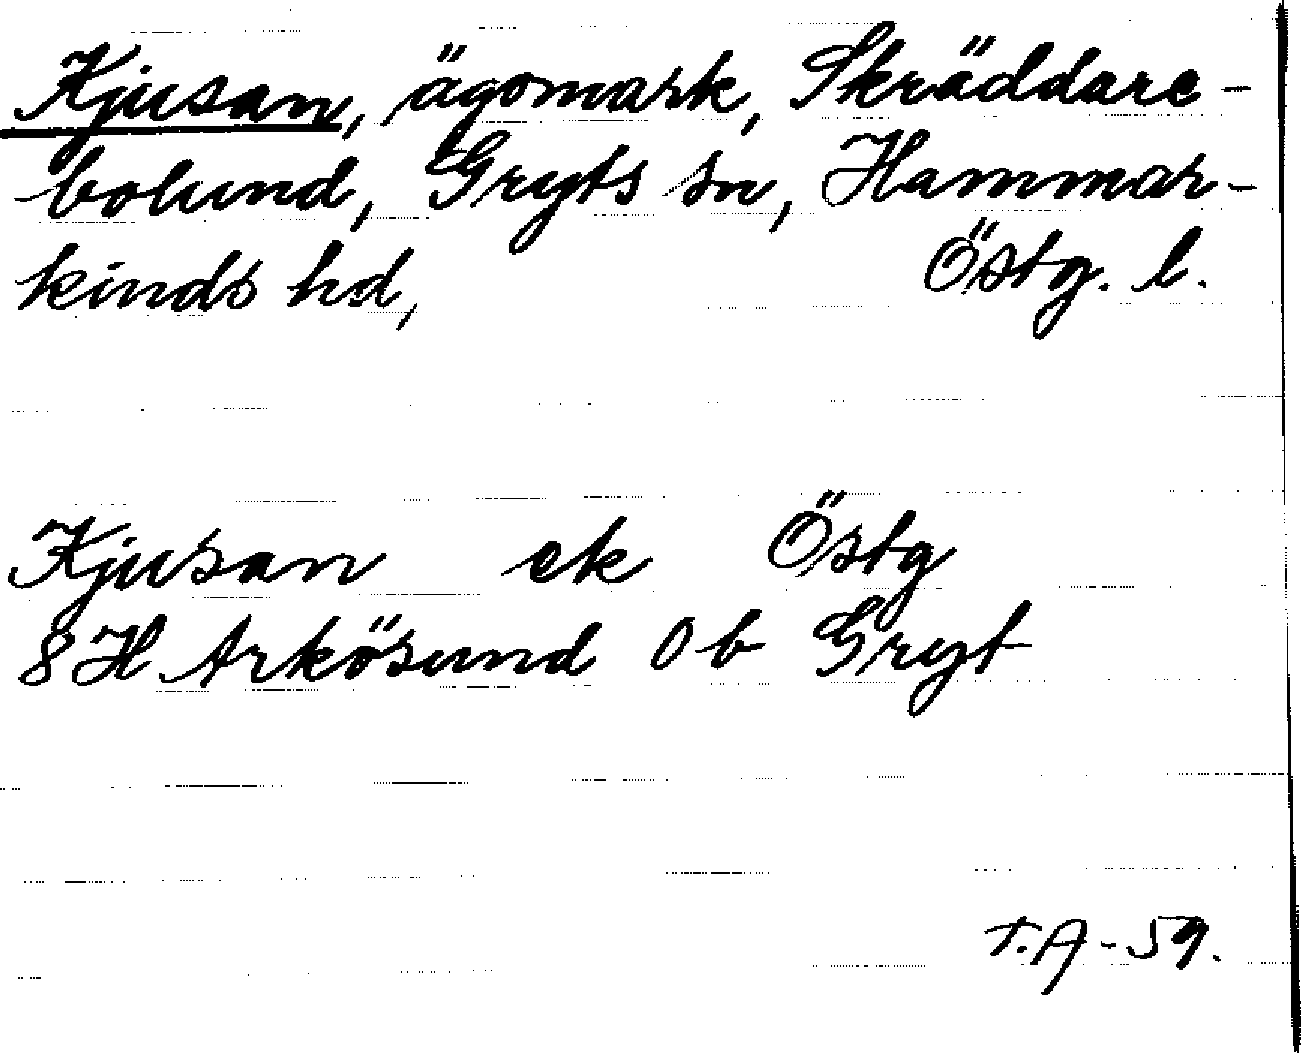 Kjusan, ägomark, Skräddare-
bolund, Gryts sn, Hammar-
kinds hd, Östg. l.
Kjusan ek Östg
8H Arkösund 0b Gryt
T.A-59.